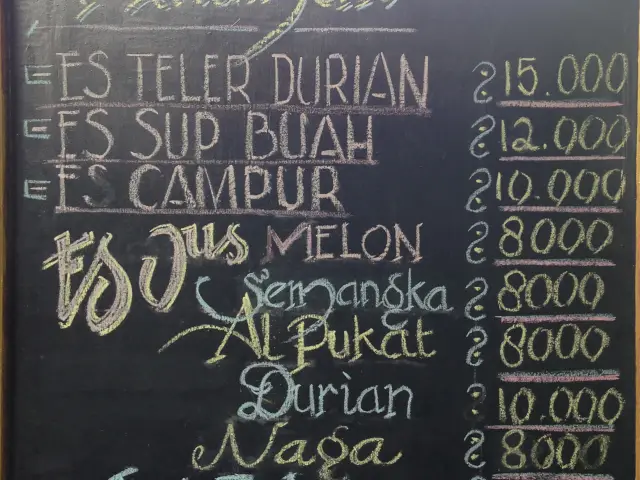 ES TELER DURIAN 15.000
ES SUP BUAH 12.000
ES CAMPUR 10.000
ES Jus MELON 8000
Semangka 8000
Al Pukat 8000
Durian 10.000
Naga 8000